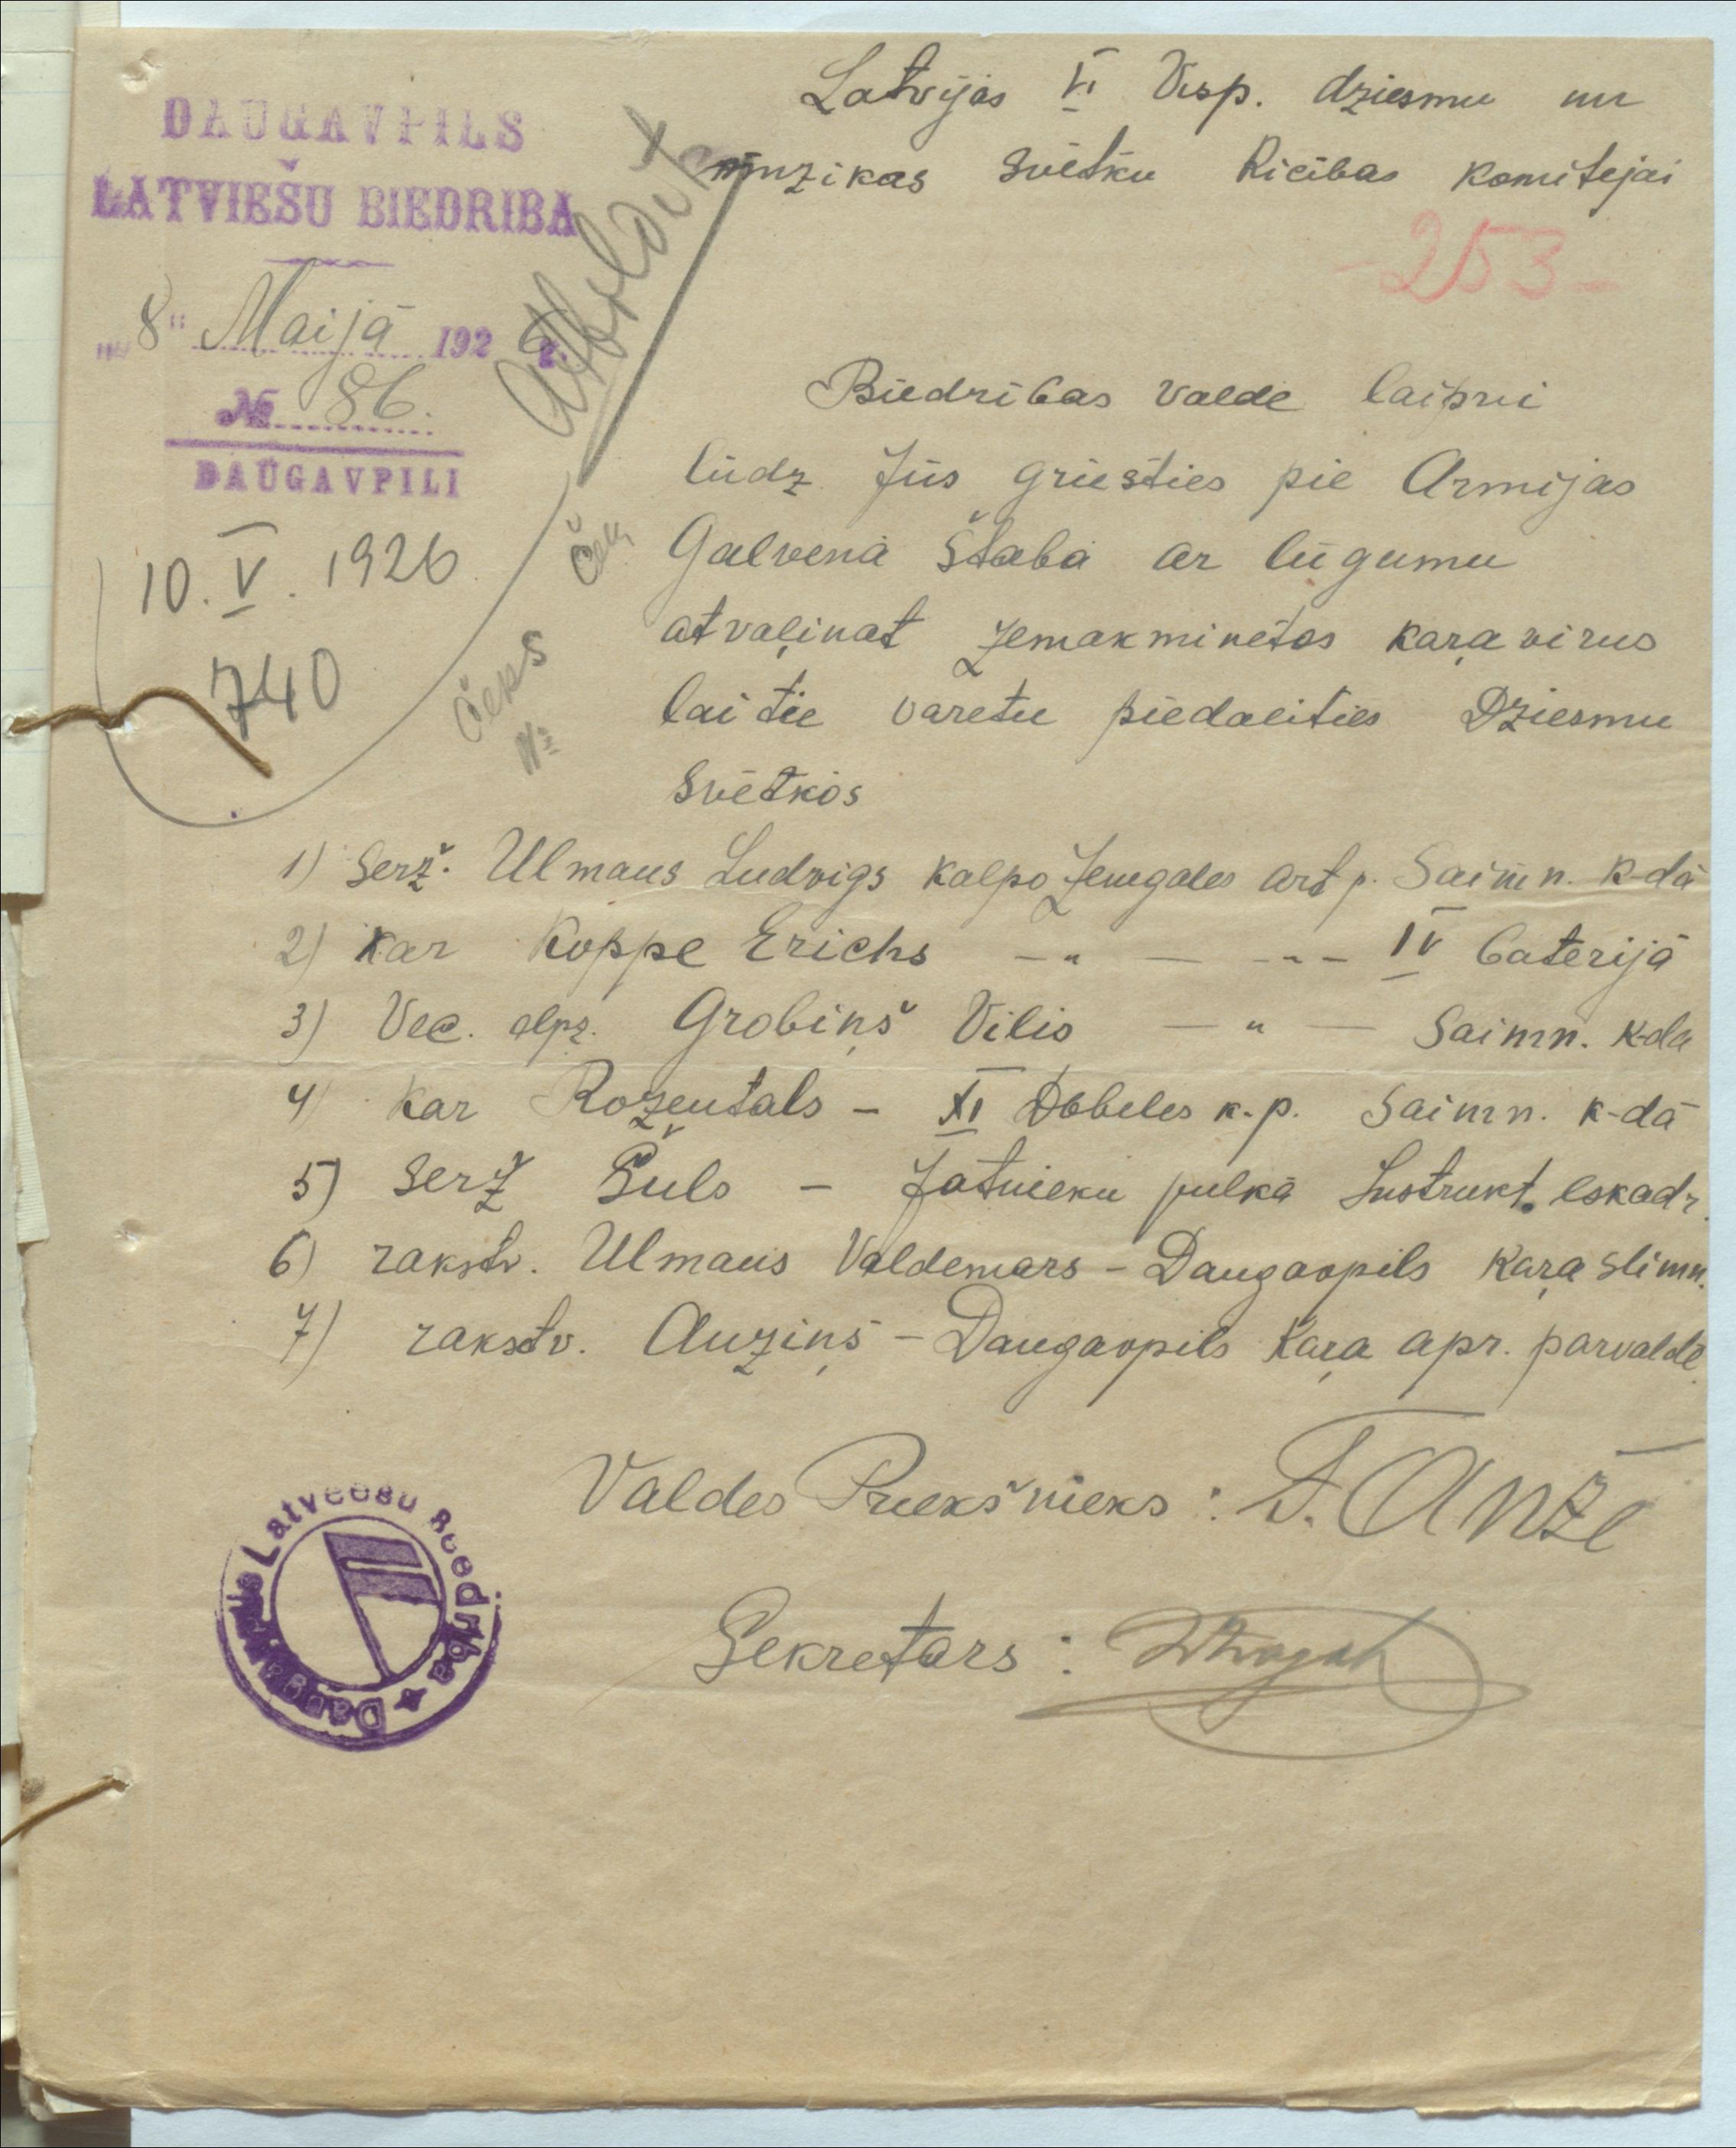 DAUGAVPILS
LATVIEŠU BIEDRIBA
„8" Maijā 1926 g.
№ 86.
DAUGAVPILĪ
10. V. 1926
740
Atbildēt
Latvijas VI Visp. dziesmu un
mūzikas svētku Rīcības Komitejai
-253-
Biedrības valde laipni
lūdz Jūs griesties pie Armijas
Galvenā Štaba ar lūgumu
atvaļinat zemakminētos kaŗavirus
lai tie varetu piedalities Dziesmu
Svētkos
1) Serž. Ulmans Ludvigs kalpo Zemgales art p. Saimn. k-dā
2) kar Koppe Erichs —„— -„- IV baterijā
3) Vec. Grobiņš Vilis —„— Saimn. k-da
4) kar Rozentals – XI Dobeles k.p. Saimn. k-dā
5) Serž Šuls – Jatnieku pulkā Instrukt. eskadr.
6) rakstv. Ulmans Valdemars – Daugavpils Kaŗa slimn.
7) rakstv. Auziņš – Daugavpils Kaŗa apr. parvaldē
Valdes Priekšnieks: F. Anže
Sekretars:
Daugavpils Latveešu Beedrība